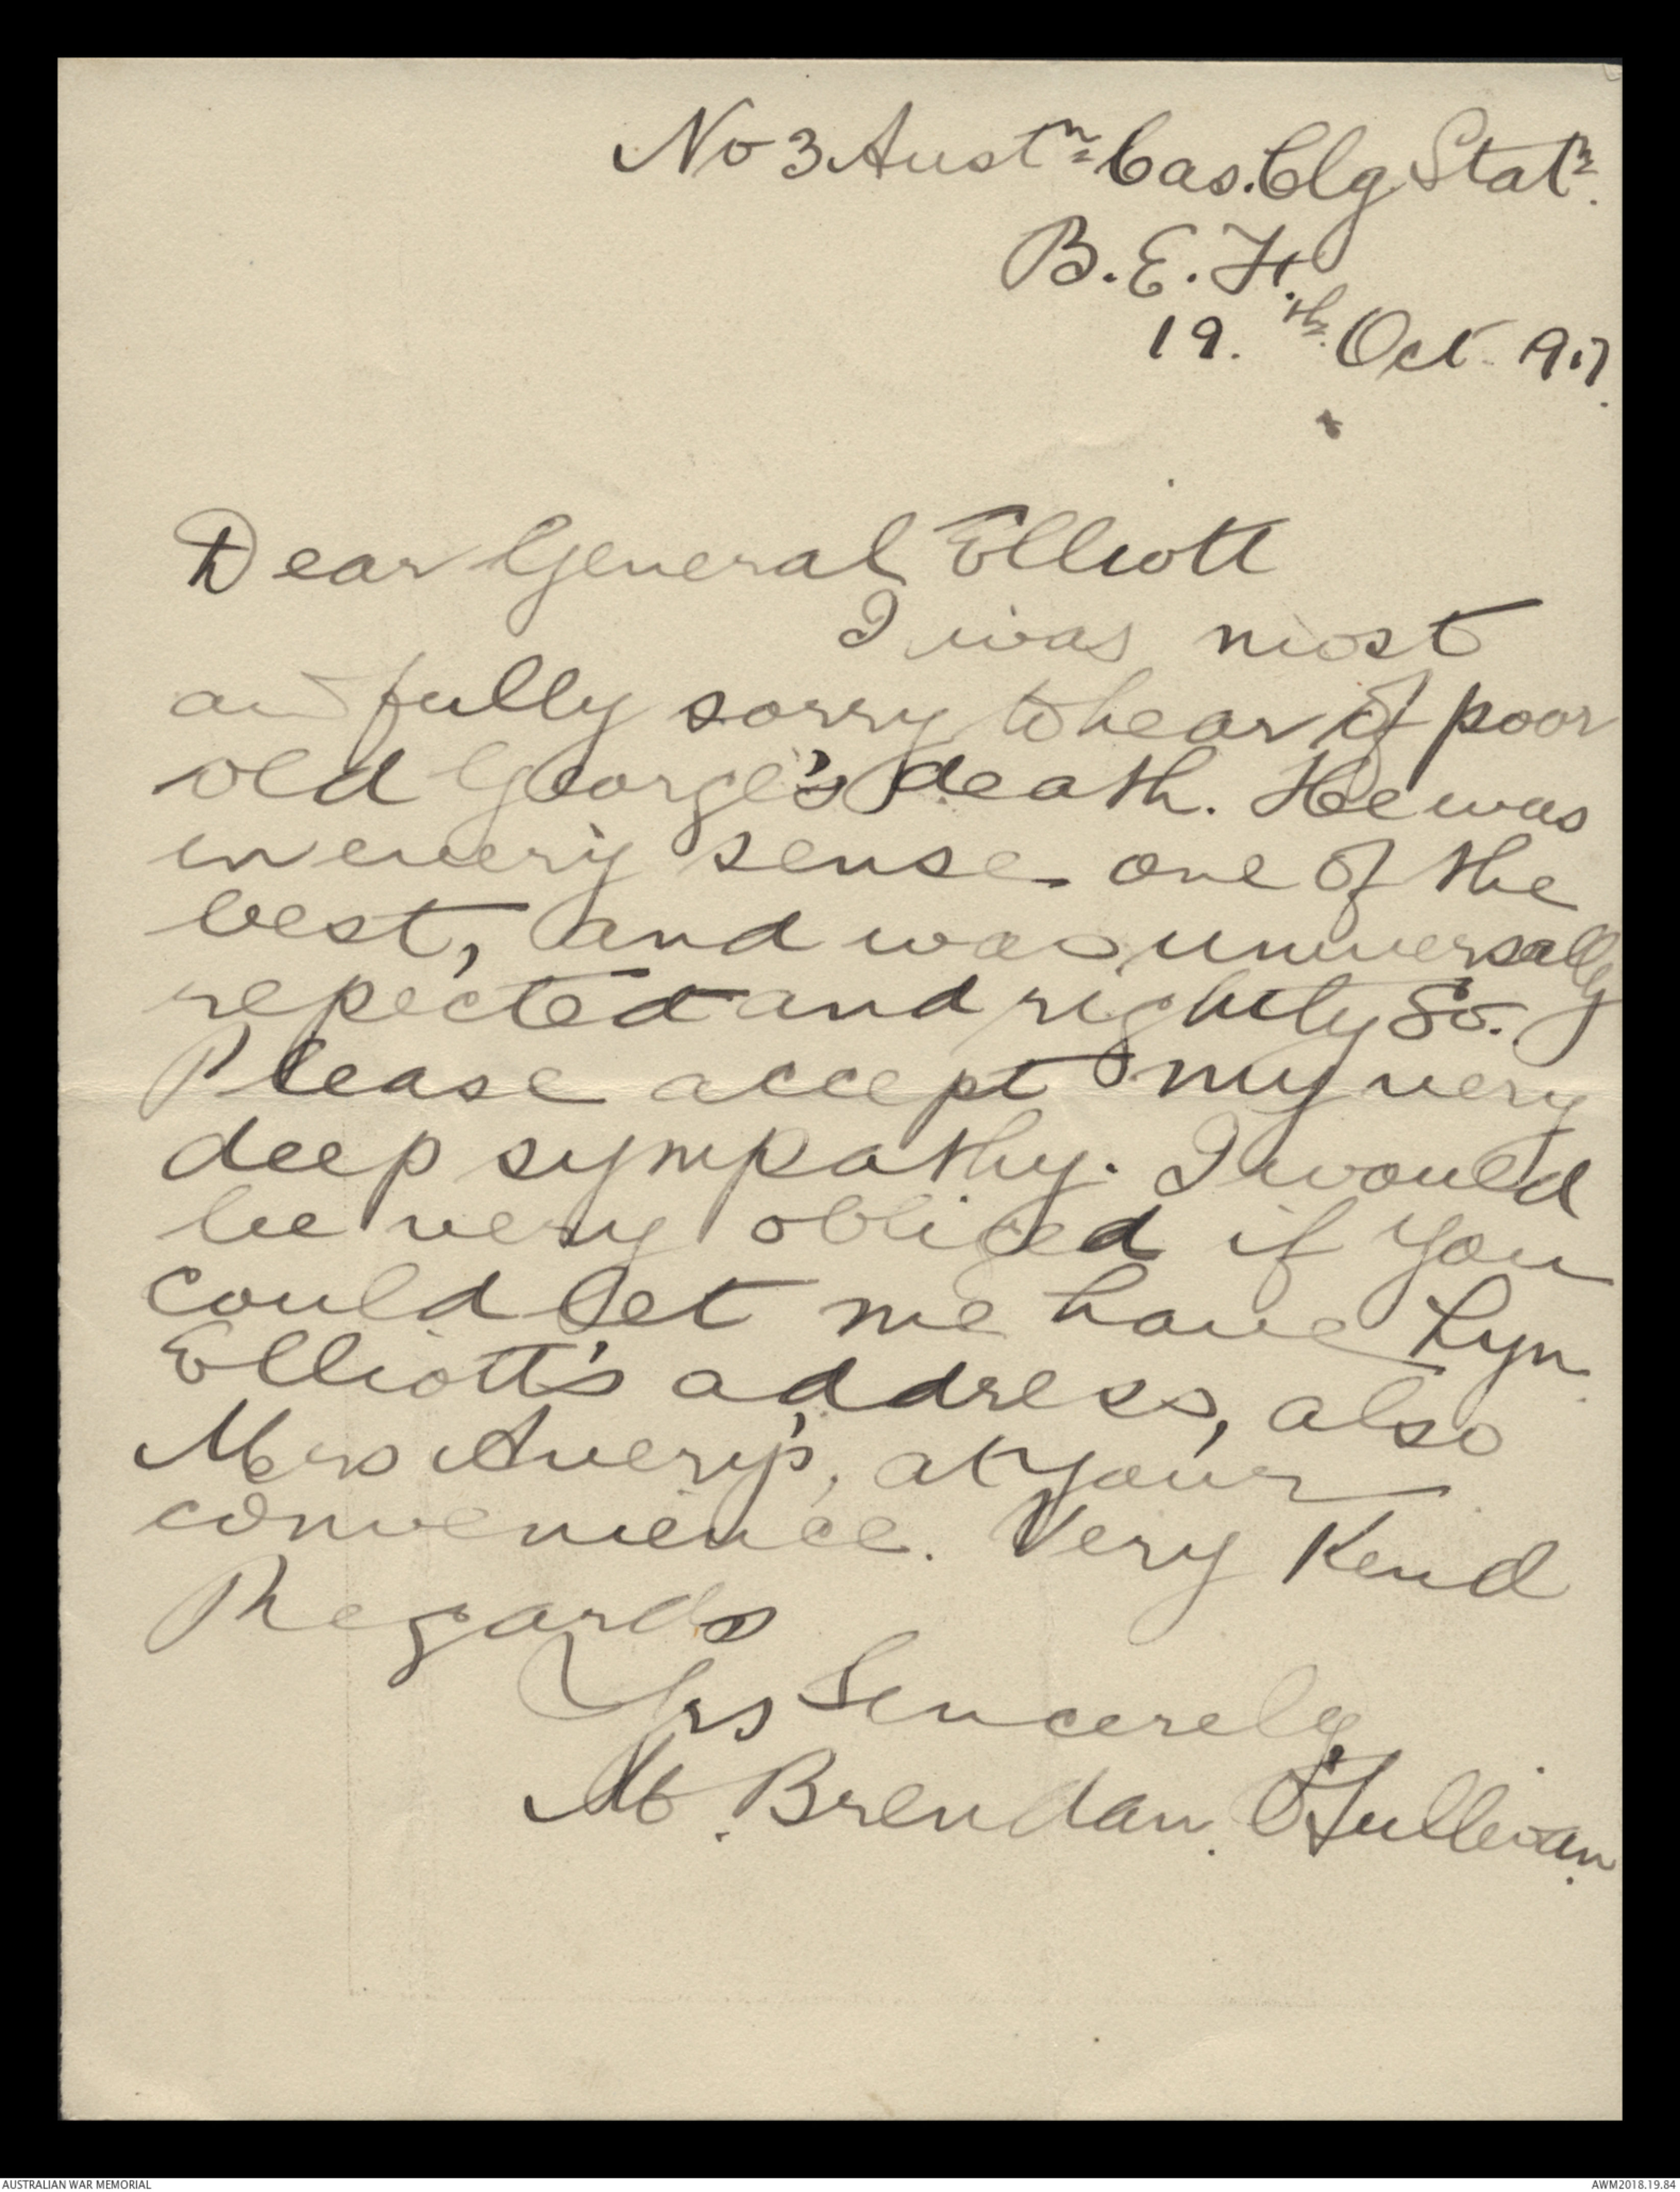 No 3 Austn Cas. Clg Statn.
B.E.F.
19.th Oct 917.
Dear General Elliott
I was most
awfully sorry to hear of poor
old George's death. He was
in every sense one of the
best, and was universally
repected and rightly so.
Please accept my very
deep sympathy. I would
be very obliged if you
could let me have Lyn
Elliott's address, also
Mrs Avery's, at your
convenience. Very Kind
Regards
Yrs Sincerely
M. Brendan. O'Sullivan.
AUSTRALIAN WAR MEMORIAL
AWM2018.19.84